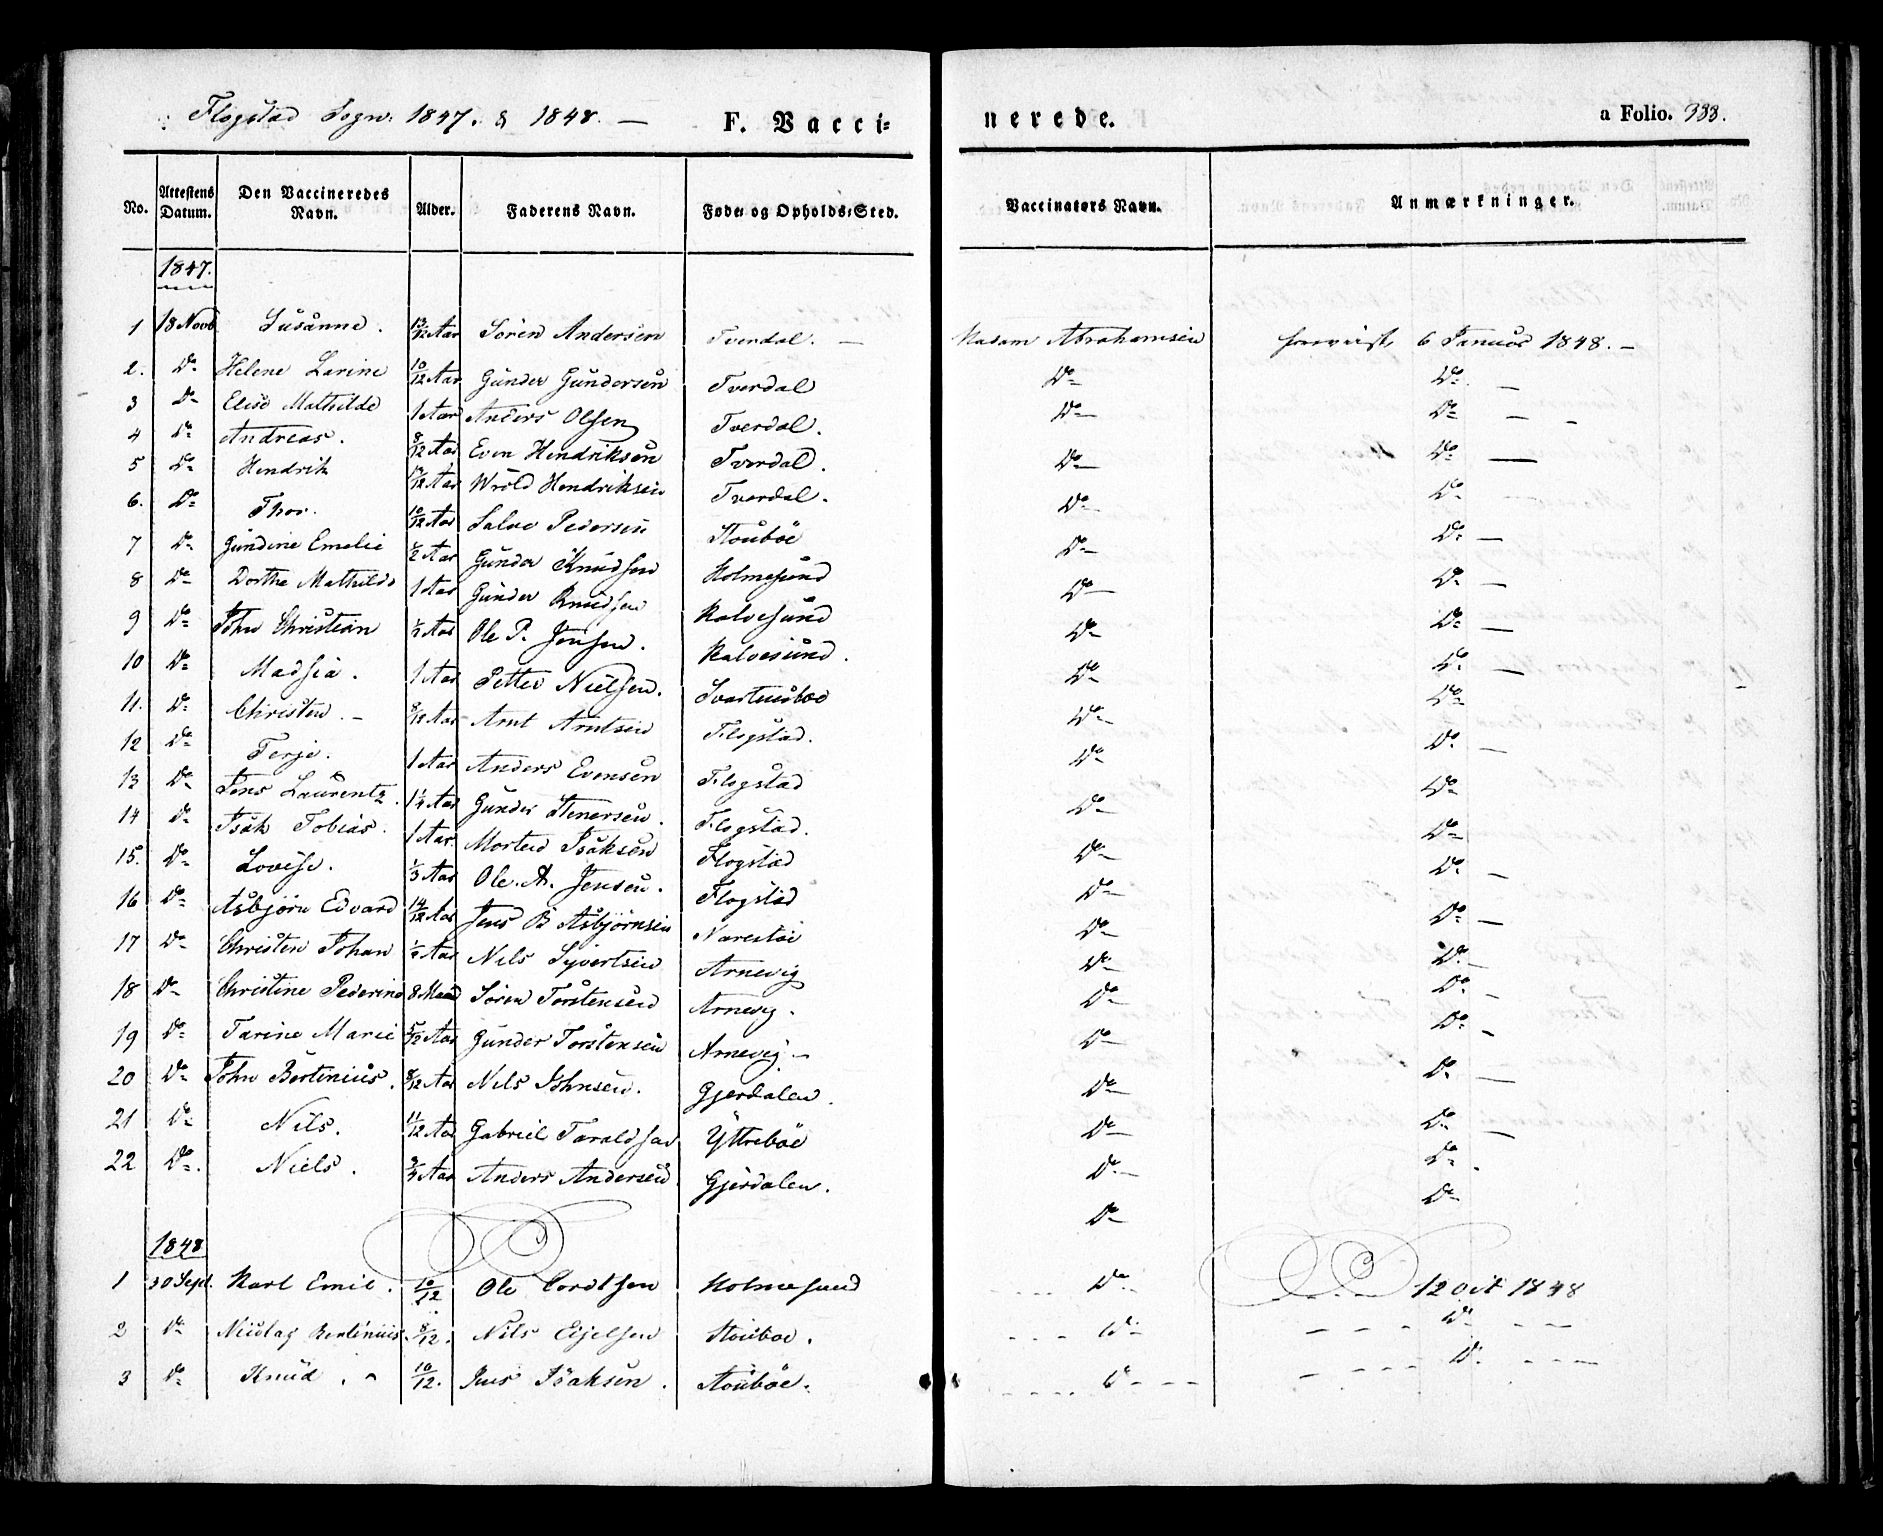 Flogstad Sogn. 1847. & 1848. — F. Vacci- nerede. a Folio. 333.
No. Attestens Datum. Den Vaccineredes Navn. Alder. Faderens Navn. Føde- og Opholds-Sted. Vaccinators Navn. Anmærkninger.
1847.
1 18 Novb Susanne. 13/12 Aar Sören Andersen Tverdal. — Madam Abrahamsen 6 Januar 1848. —
2. Do Helene Larine 10/12 Aar Gunder Gundersen Tverdal Do Do —
3 Do Elise Mathilde 1 Aar Anders Olsen Tverdal. Do Do — -
4 Do Andreas. 8/12 Aar Even Hendriksen Tverdal. Do Do —
5 Do Hendrik 13/12 Aar Wrold Hendriksen Tverdal. Do Do
6. Do Thor. 10/12 Aar Salve Pedersen Stouböe Do Do —
7 Do Gundine Emelie 1/2 Aar Gunder Knudsen Holmesund Do Do —
8 Do Dorthe Mathilde 1 Aar Gunder Knudsen Kalvesund Do Do —
9 Do John Christian 1/2 Aar Ole P. Jensen. Kalvesund. Do Do —
10 Do Madsia. 1 Aar Petter Nielsen. Do Do
11. Do Christen. — 8/12 Aar Arnt Arntsen Flogstad. Do Do —
12 Do Terje. 1 Aar Anders Evensen Flogstad Do Do
13 Do Jens Laurentz. 1 1/4 Aar Gunder Stenersen. Flogstad. Do Do
14 Do Isak Tobias. 1 Aar Morten Isaksen Flogstad Do Do —
15. Do Lovise. 1/3 Aar Ole. A. Jensen. Flogstad Do Do —
16 Do Asbjörn Edvard 14/12 Aar Jens B Asbjörnsen Narestöe Do Do —
17 Do Christen Johan 1/2 Aar Nils Syvertsen Arnevig Do Do —
18 Do Christine Pederine 8 Maan Sören Torstensen Arnevig. Do Do —
19 Do Tarine Marie 5/12 Aar Gunder Torstensen Arnevig — Do Do —
20 Do John Bertinius. 8/12 Aar Nils Johnsen. Gjerdalen. Do Do —
21 Do Nils. 11/12 Aar Gabriel Taraldsen Yttreböe Do Do .
22 Do. Niels. 3/4 Aar Anders Andersen Gjerdalen. Do Do
1848
1 30 Sept. Karl Emil. 10/12 Ole Cordtsen Holmesund Do 12 Oct 1848
2 Do Nicolay Bertinius. 8/12. Nils Eijelsen Stouboe. Do Do
3 Do Knud. 10/12. Jens Isaksen. Stouböe. Do Do